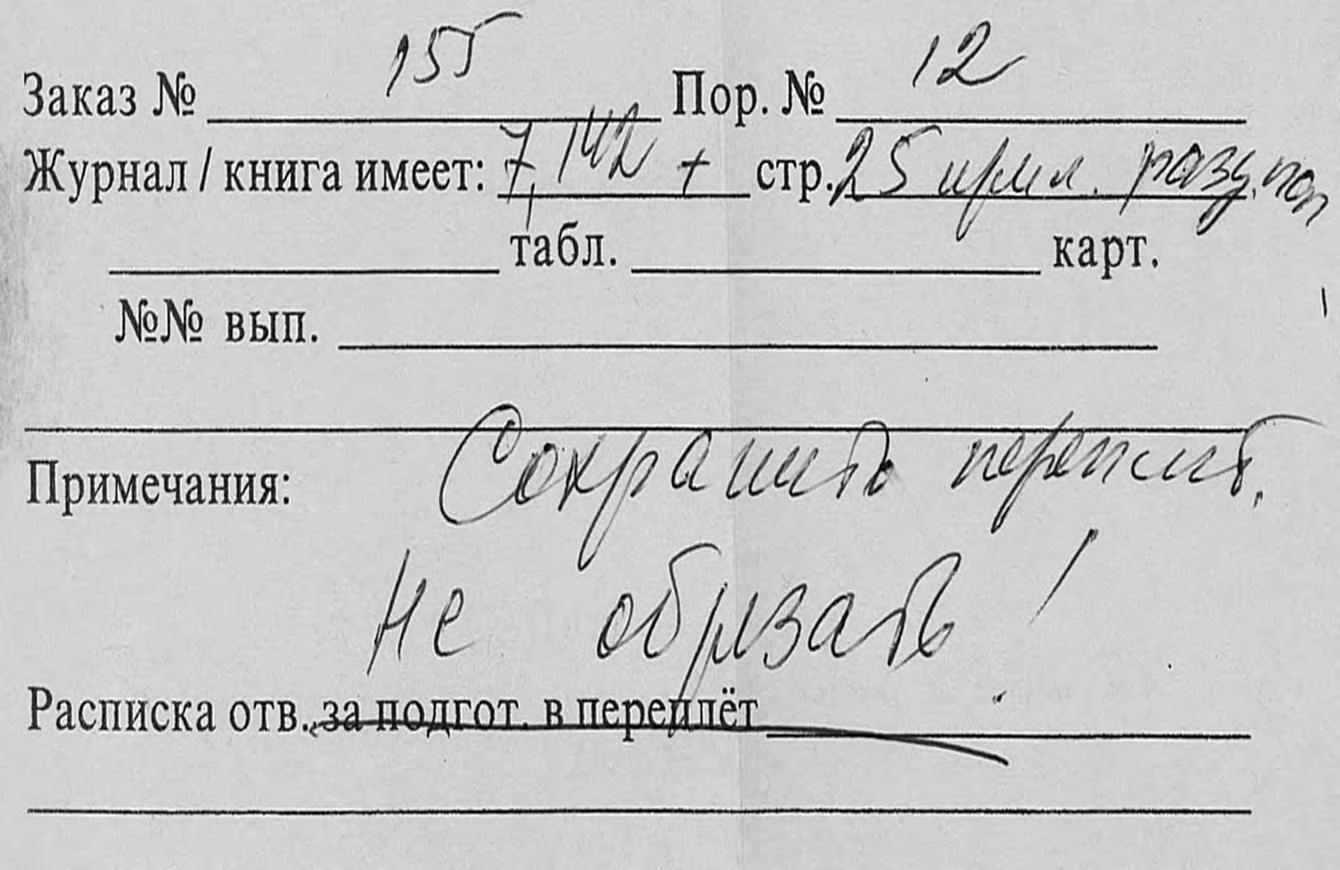 Заказ № 155 Пор. № 12
Журнал / книга имеет: 7,142 + стр. 25 илл.
табл. карт.
№№ вып.
Примечания: Сохранить переплёт.
Не обрезать!
Расписка отв. за подгот. в переплёт